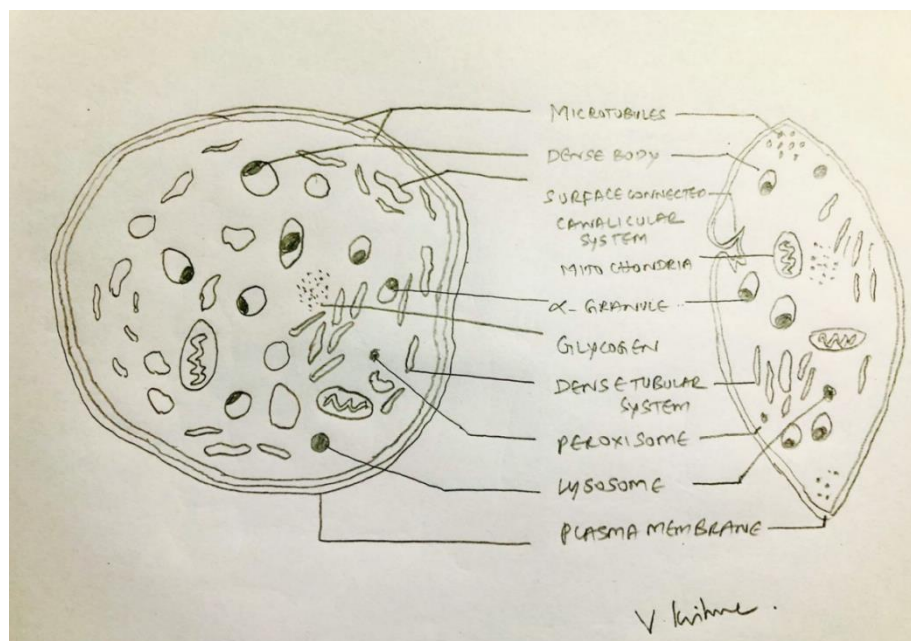 MICROTUBULES
DENSE BODY
SURFACE CONNECTED
CANALICULAR
SYSTEM
MITOCHONDRIA
α- GRANULE
GLYCOGEN
DENSE TUBULAR
SYSTEM
PEROXISOME
LYSOSOME
PLASMA MEMBRANE
V.